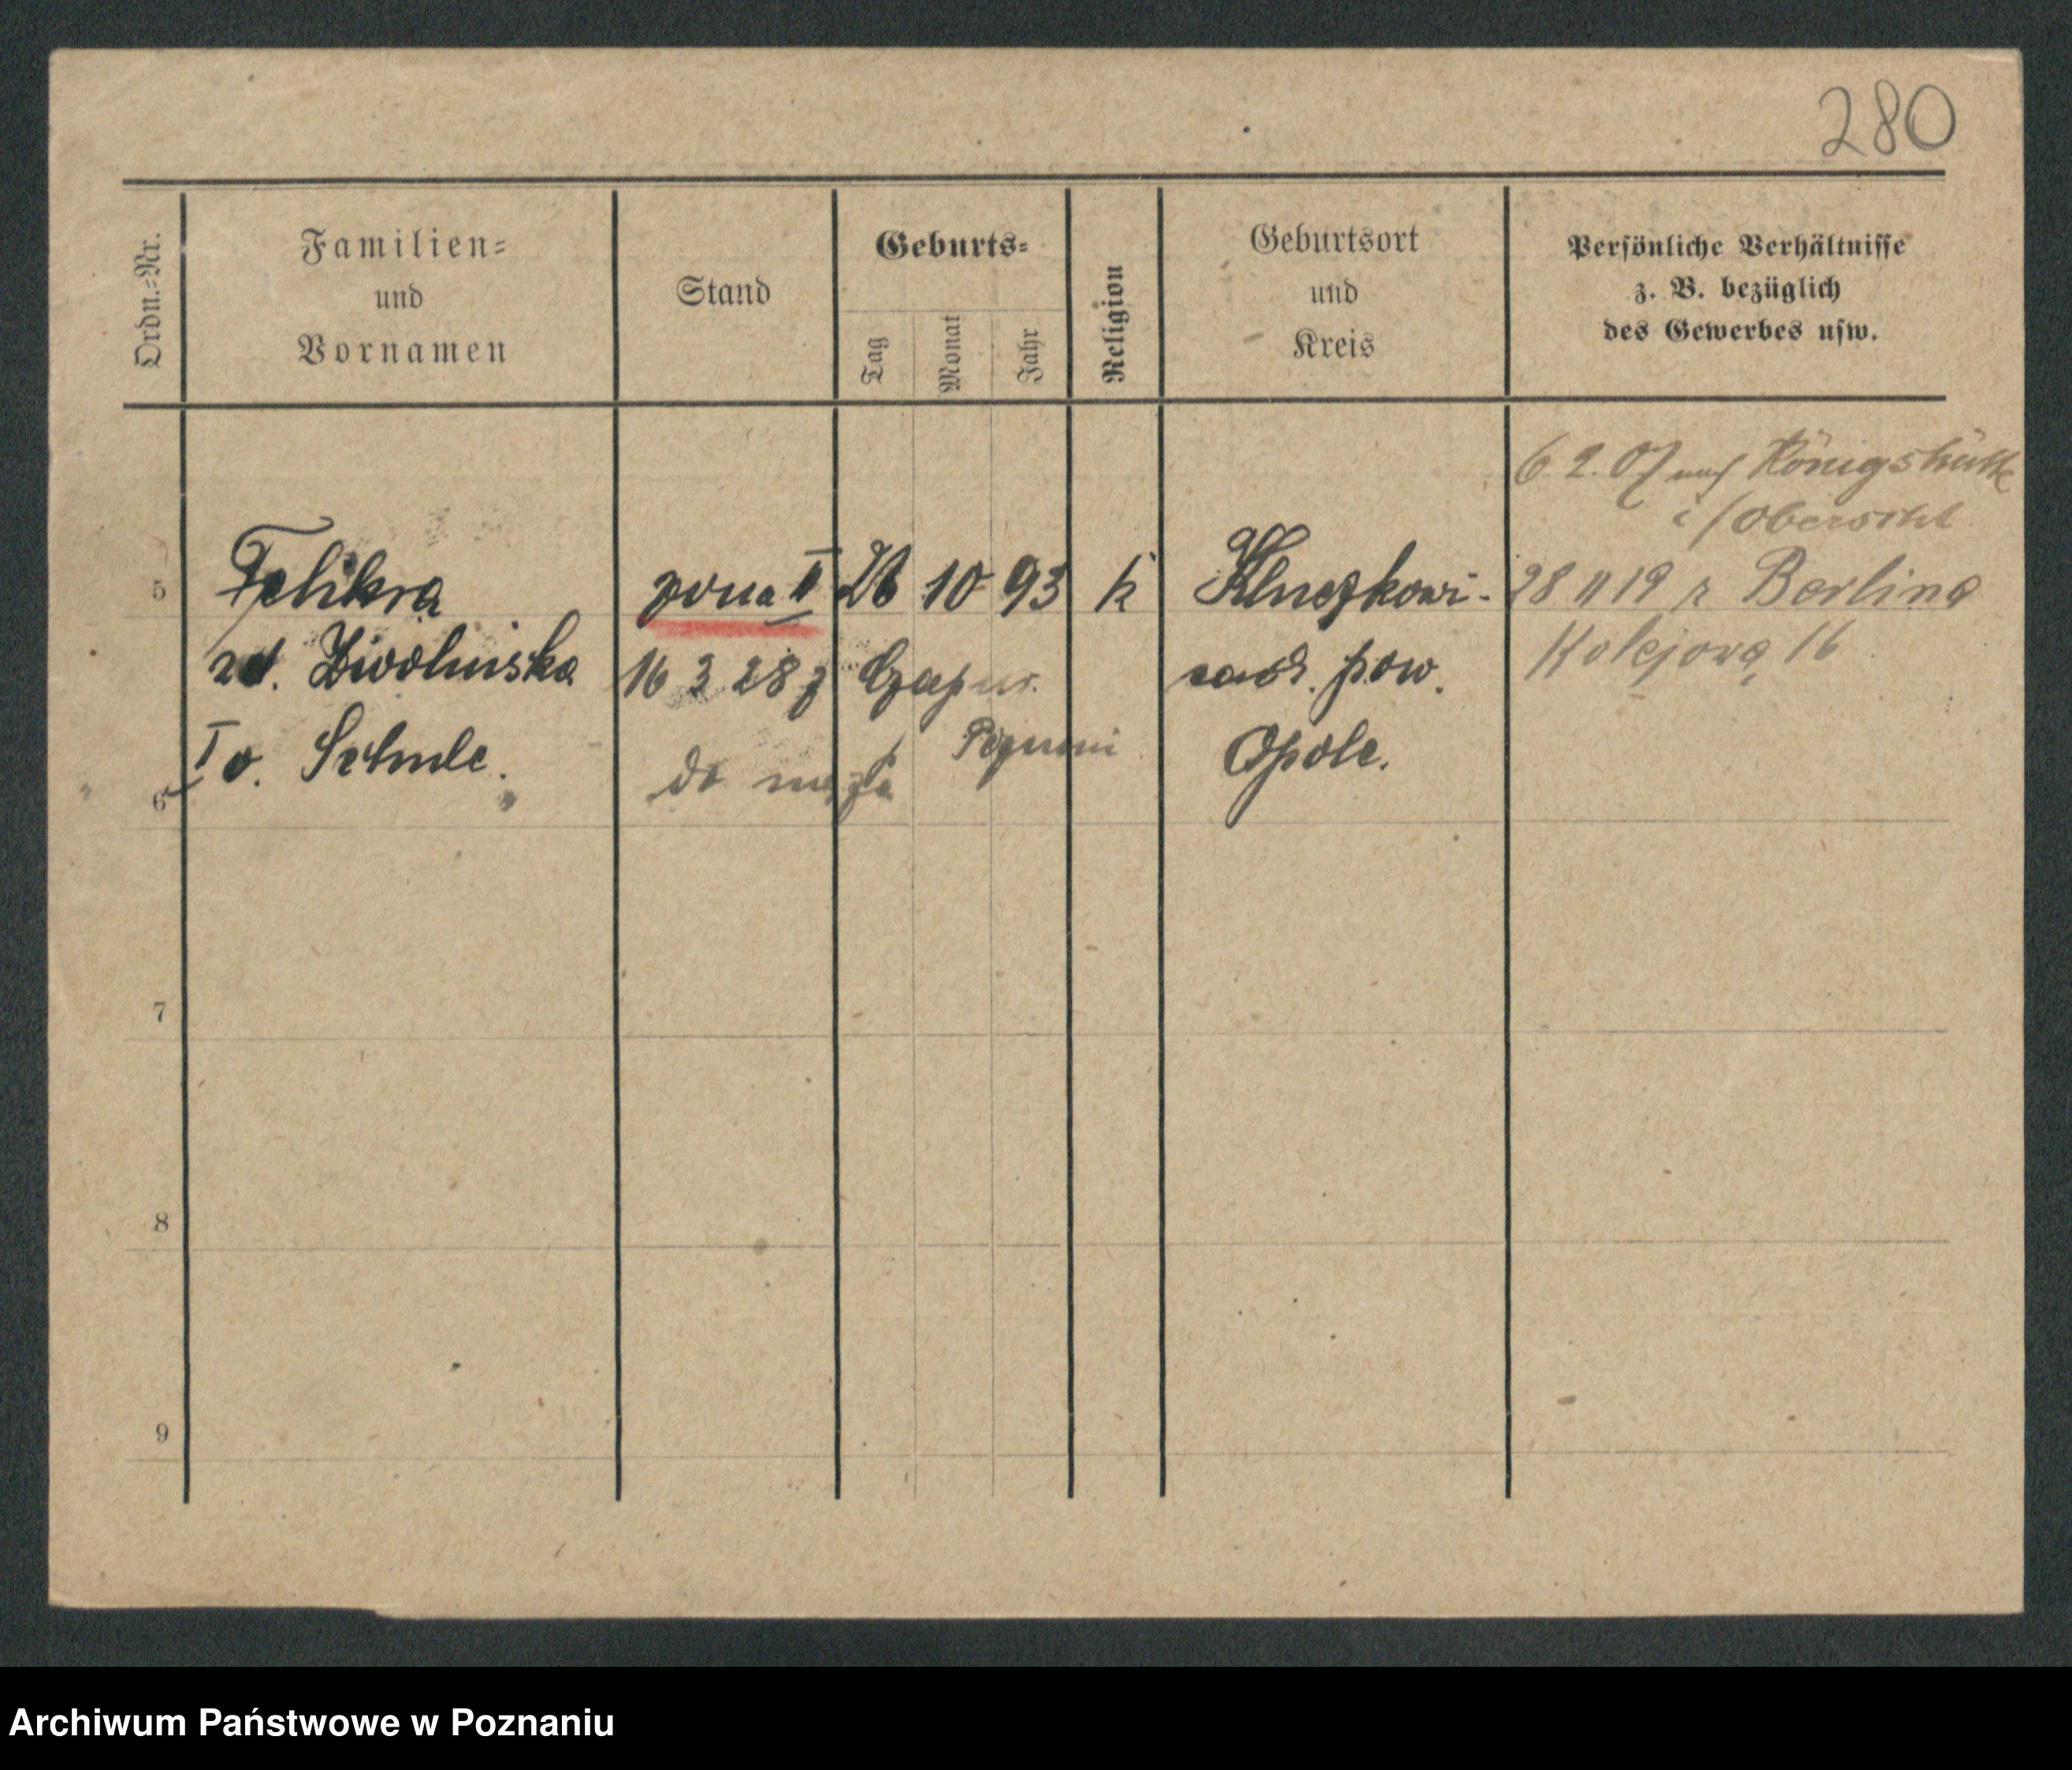 280
Ordn.-Nr.
Familien-
und
Vornamen
Stand
Geburts-
Tag
Monat
Jahr
Religion
Geburtsort
und
Kreis
Persönliche Verhältnisse
z. B. bezüglich
des Gewerbes usw.
6. 2. 07 nach Königshütte
i/Oberschl
5 Feliksa żona II 26 10 93 k 28 11 19 z Berlina
zd. Zwolinska 16 3 28 z pow. Kolejowa 16
I v. Schule. do męża Opole.
6
7
8
9
Archiwum Państwowe w Poznaniu